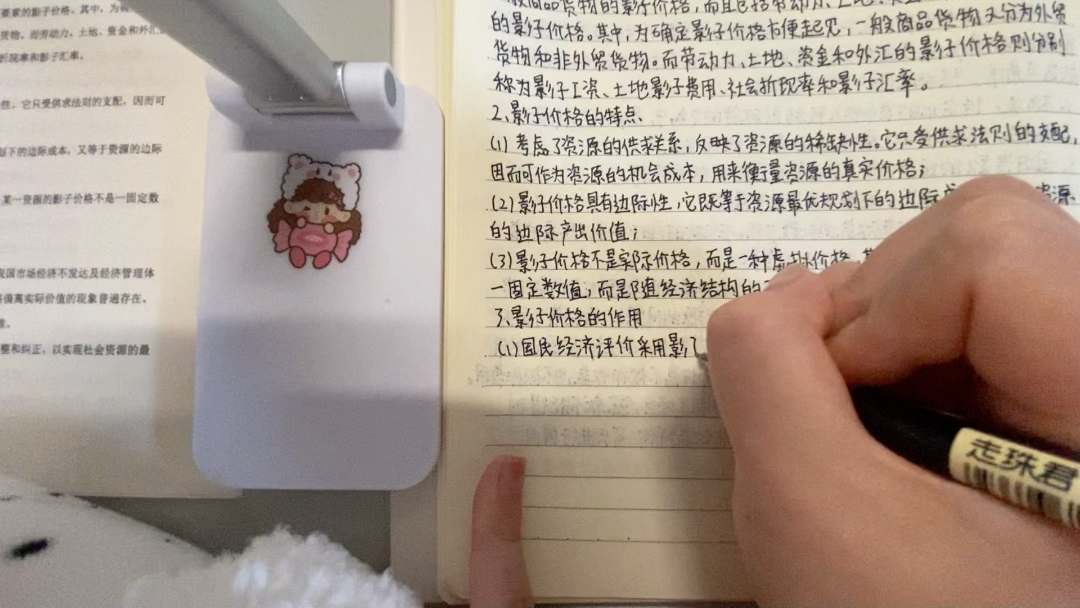 要素的影子价格。其中，为
货物。而劳动力、土地、资金和外汇
折现率和影子汇率。
性。它只受供求法则的支配，因而可
划下的边际成本，又等于资源的边际
某一资源的影子价格不是一固定数
我国市场经济不发达及经济管理体
偏离实际价值的现象普遍存在。
整和纠正，以实现社会资源的最
般商品货物的影子价格，而且包括劳动力、土地、
的影子价格。其中，为确定影子价格方便起见，一般商品货物又分为外贸
货物和非外贸货物。而劳动力、土地、资金和外汇的影子价格则分别
称为影子工资、土地影子费用、社会折现率和影子汇率。
2、影子价格的特点、
(1) 考虑了资源的供求关系，反映了资源的稀缺性。它只受供求法则的支配，
因而可作为资源的机会成本，用来衡量资源的真实价格；
(2) 影子价格具有边际性，它既等于资源最优规划下的边际 资源
的边际产出价值；
(3) 影子价格不是实际价格，而是一种虚拟价格，
一固定数值，而是随经济结构的
3、影子价格的作用
(1) 国民经济评价采用影
走珠君